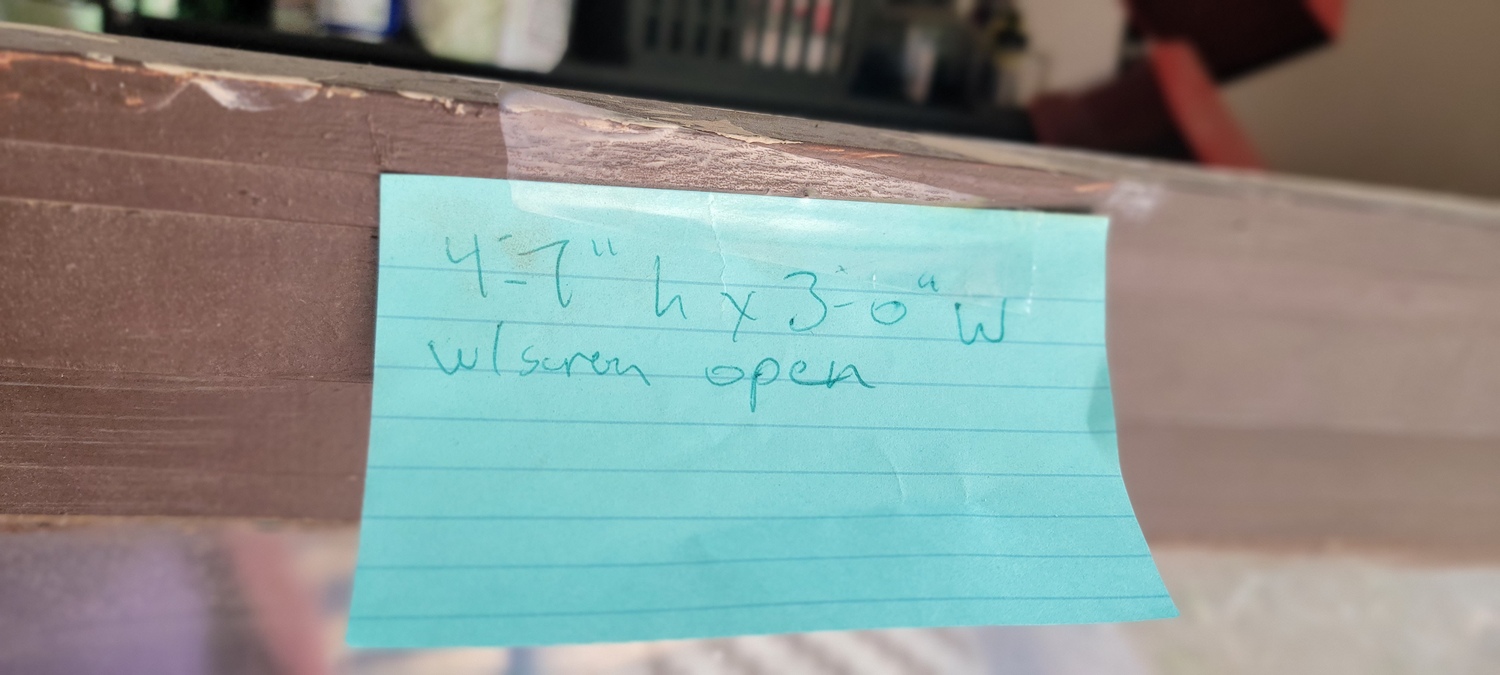 4'-7" h x 3'-0" W
w/screen open